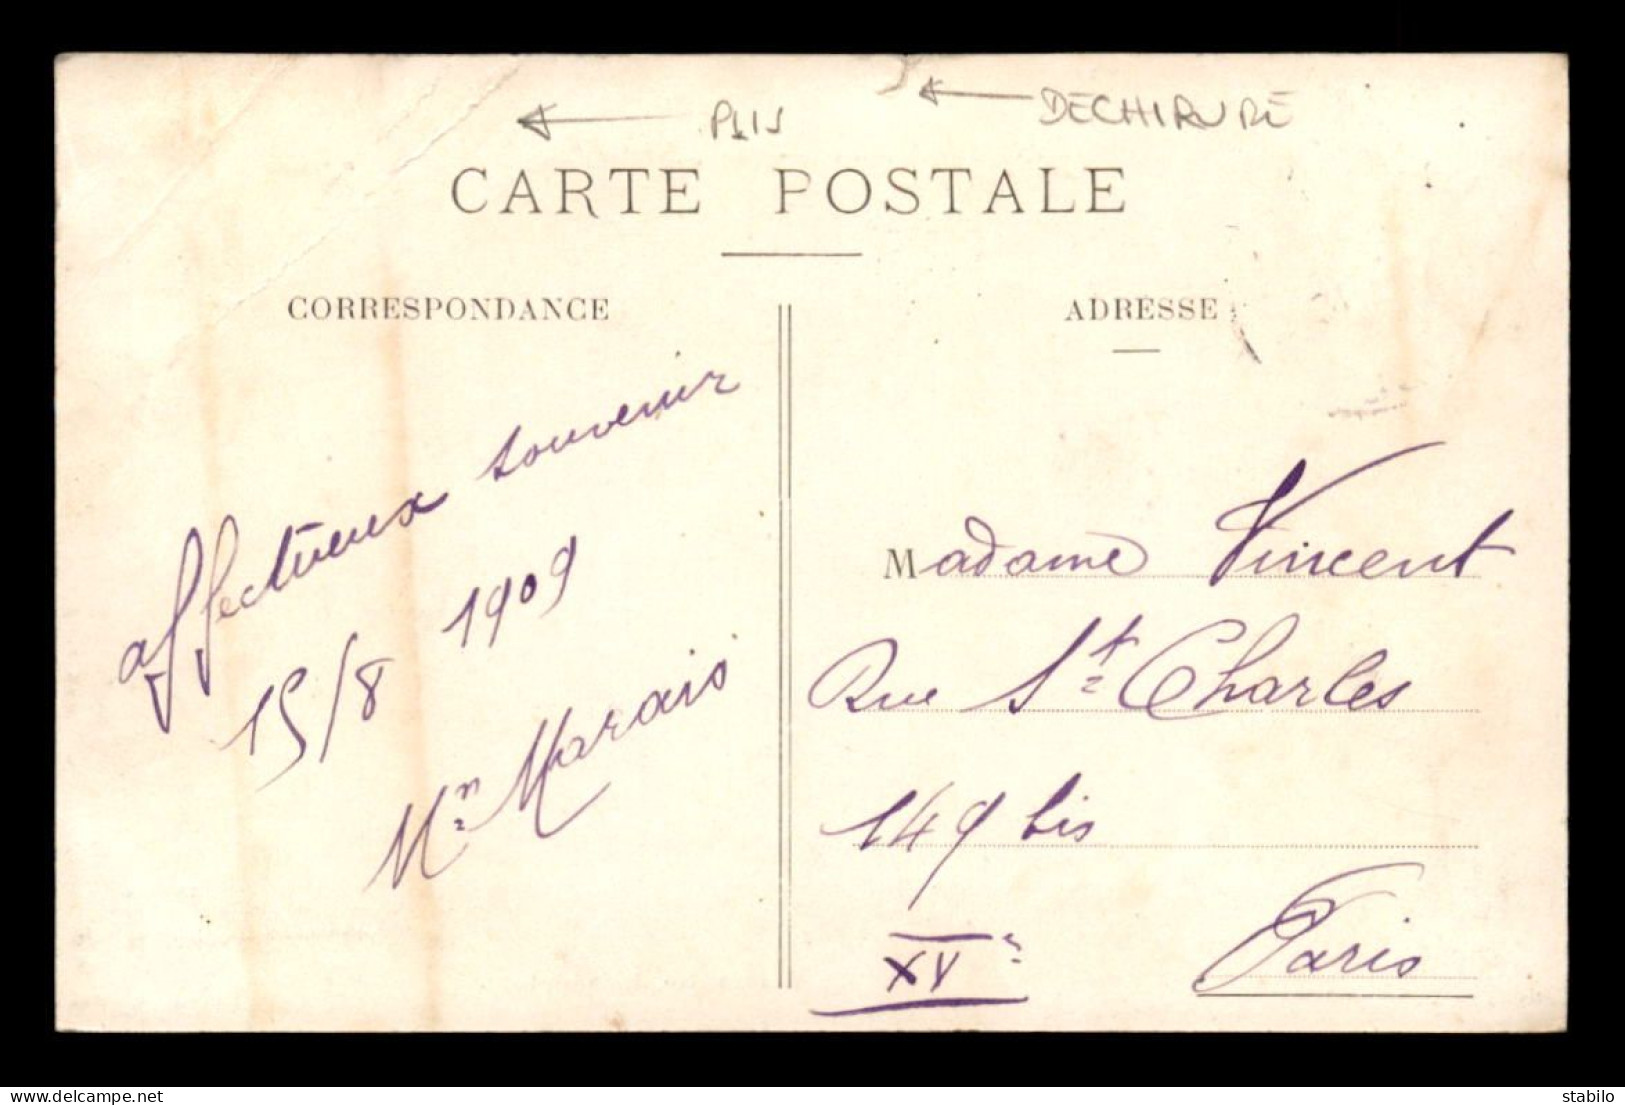 PLIS
DECHIRURE
CARTE POSTALE
CORRESPONDANCE
affectueux souvenir
15/8 1909
Mn Marais
ADRESSE
Madame Vincent
Rue St Charles
149 bis
XVe
Paris
stabilo
© www.delcampe.net